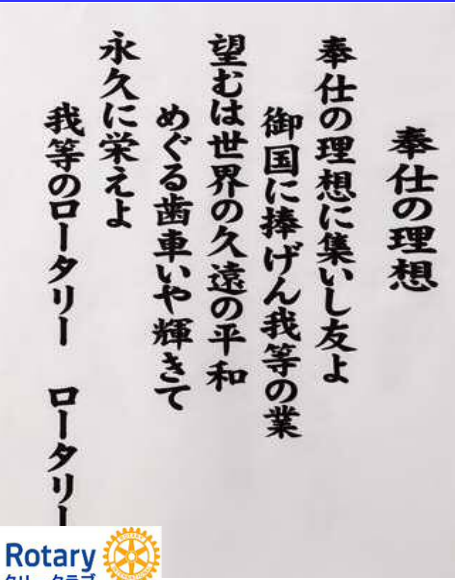 奉仕の理想
奉仕の理想に集いし友よ
御国に捧げん我等の業
望むは世界の久遠の平和
めぐる歯車いや輝きて
永久に栄えよ
我等のロータリー ロータリー
Rotary